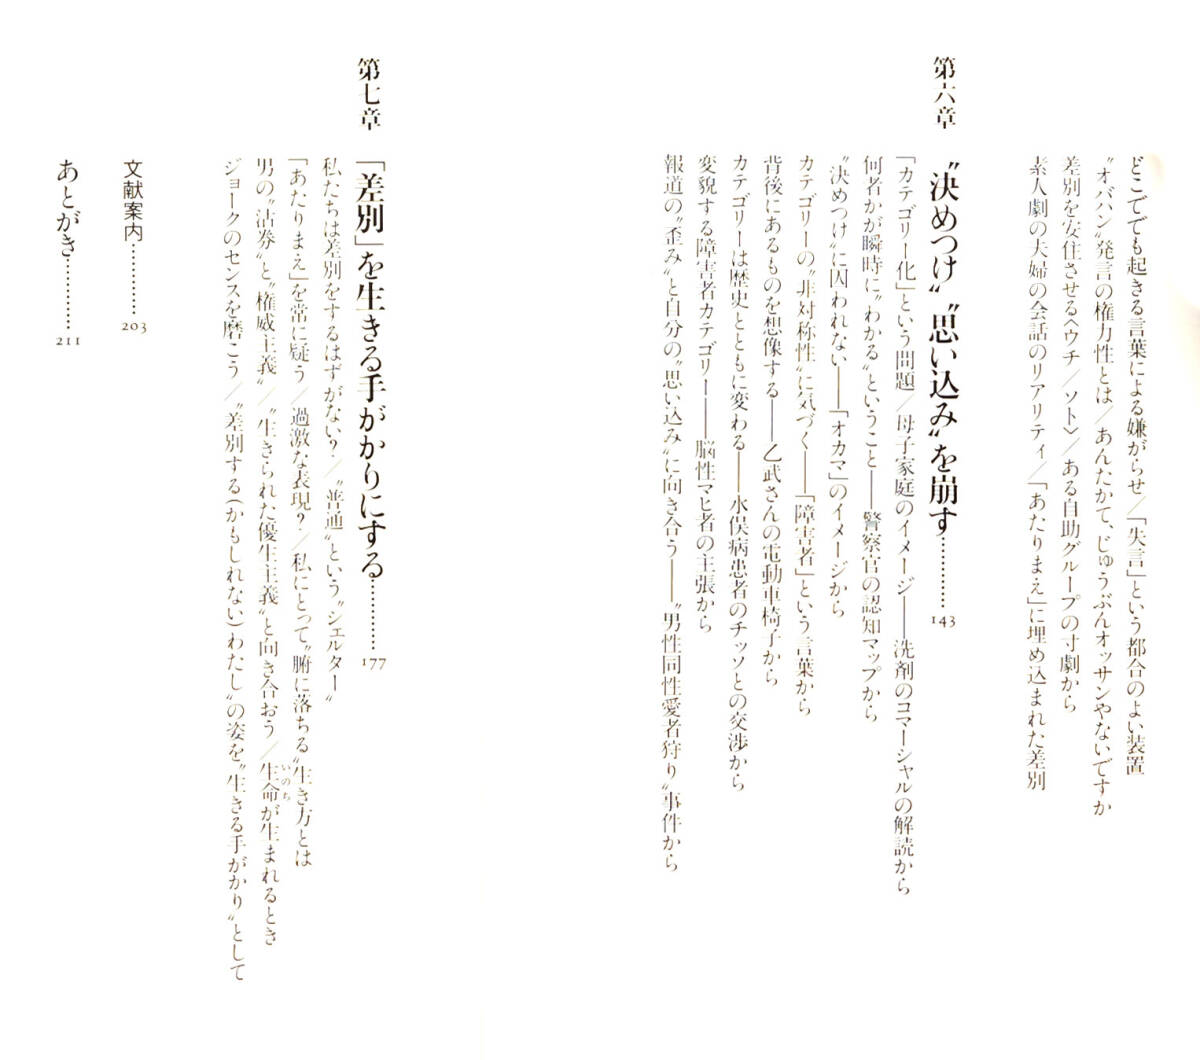 どこででも起きる言葉による嫌がらせ／「失言」という都合のよい装置
〝オバハン〟発言の権力性とは／あんたかて、じゅうぶんオッサンやないですか
差別を安住させる〈ウチ／ソト〉／ある自助グループの寸劇から
素人劇の夫婦の会話のリアリティ／「あたりまえ」に埋め込まれた差別
第六章 〝決めつけ〟〝思い込み〟を崩す…………143
「カテゴリー化」という問題／母子家庭のイメージ――洗剤のコマーシャルの解読から
何者かが瞬時に〝わかる〟ということ――警察官の認知マップから
〝決めつけ〟に囚われない――「オカマ」のイメージから
カテゴリーの〝非対称性〟に気づく――「障害者」という言葉から
背後にあるものを想像する――乙武さんの電動車椅子から
カテゴリーは歴史とともに変わる――水俣病患者のチッソとの交渉から
変貌する障害者カテゴリー――脳性マヒ者の主張から
報道の〝歪み〟と自分の〝思い込み〟に向き合う――〝男性同性愛者狩り〟事件から
第七章 「差別」を生きる手がかりにする…………177
私たちは差別をするはずがない？／〝普通〟という〝シェルター〟
「あたりまえ」を常に疑う／過激な表現？／私にとって〝腑に落ちる〟生き方とは
男の〝沽券〟と〝権威主義〟／〝生きられた優生主義〟と向き合おう／生命が生まれるとき
いのち
ジョークのセンスを磨こう／〝差別する（かもしれない）わたし〟の姿を〝生きる手がかり〟として
文献案内…………203
あとがき…………211